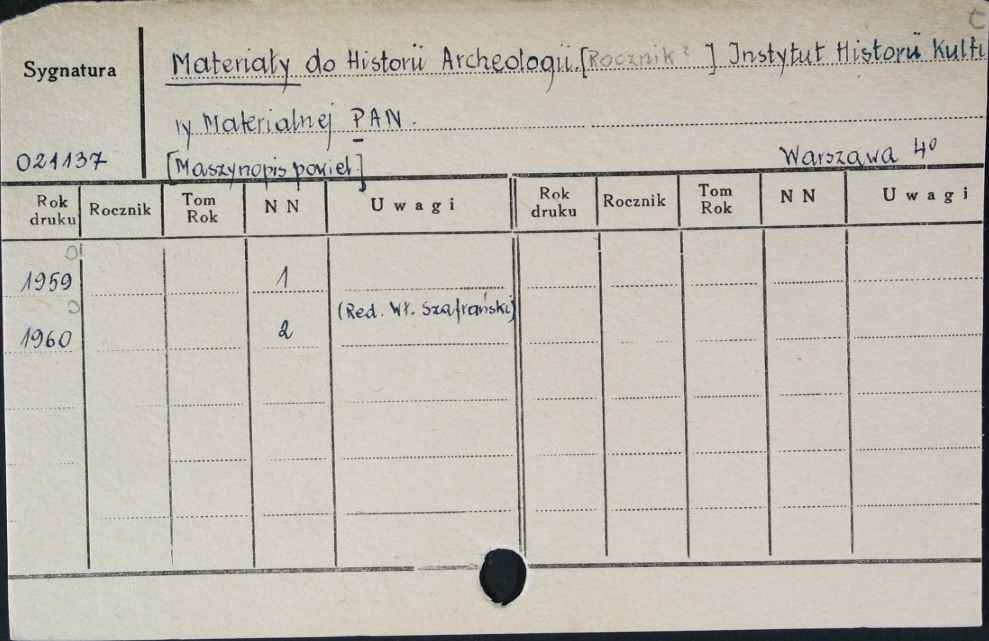 Sygnatura
Materiały do Historii Archeologii. [Rocznik ? ] Instytut Historii Kultu
ry Materialnej PAN.
021137
[Maszynopis powiel.]
Warszawa 4º
Rok druku Rocznik Tom Rok N N Uwagi Rok druku Rocznik Tom Rok N N Uwagi
1959 1
(Red. Wł. Szafrański)
1960 2